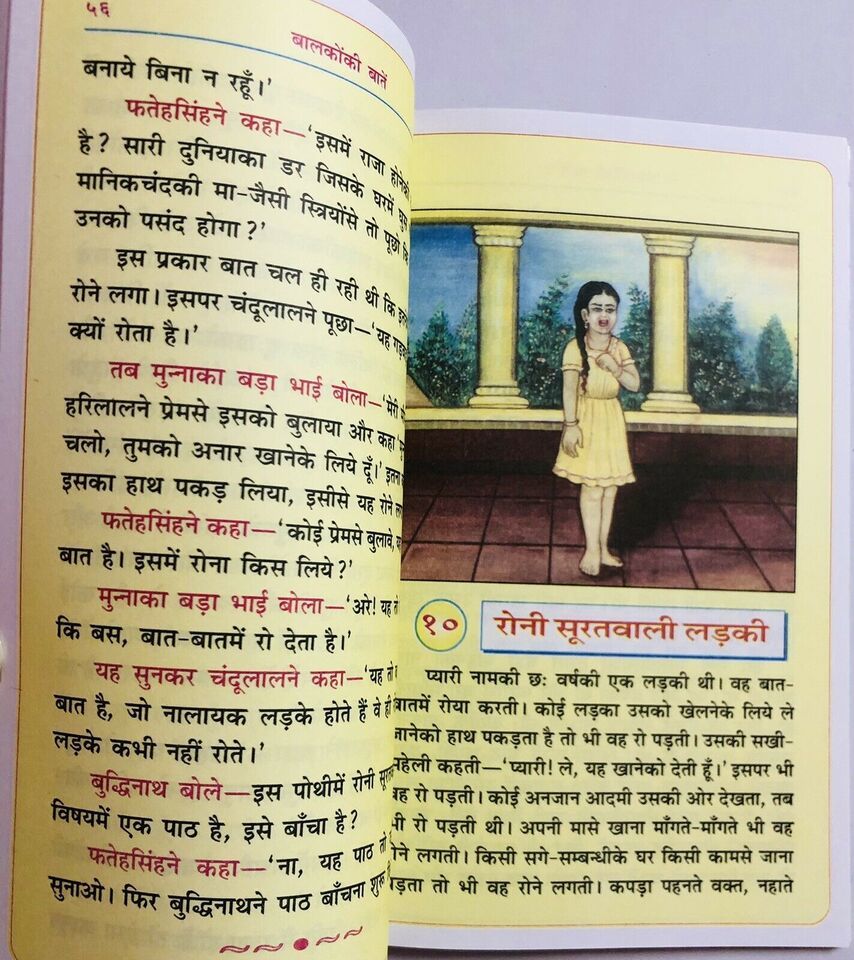 ५६
बालकोंकी बातें
बनाये बिना न रहूँ।'
फतेहसिंहने कहा—'इसमें राजा होनेकी
है? सारी दुनियाका डर जिसके घरमें घुस
मानिकचंदकी मा-जैसी स्त्रियोंसे तो पूछो
उनको पसंद होगा?'
इस प्रकार बात चल ही रही थी कि
रोने लगा। इसपर चंदूलालने पूछा—'यह
क्यों रोता है।'
तब मुन्नाका बड़ा भाई बोला—'मेरी
हरिलालने प्रेमसे इसको बुलाया और कहा
चलो, तुमको अनार खानेके लिये दूँ।' इतना
इसका हाथ पकड़ लिया, इसीसे यह रोने
फतेहसिंहने कहा—'कोई प्रेमसे बुलावे,
बात है। इसमें रोना किस लिये?'
मुन्नाका बड़ा भाई बोला—'अरे! यह तो
कि बस, बात-बातमें रो देता है।'
यह सुनकर चंदूलालने कहा—'यह तो
बात है, जो नालायक लड़के होते हैं वे ही
लड़के कभी नहीं रोते।'
बुद्धिनाथ बोले—इस पोथीमें रोनी
विषयमें एक पाठ है, इसे बाँचा है?
फतेहसिंहने कहा—'ना, यह पाठ तो
सुनाओ। फिर बुद्धिनाथने पाठ बाँचना शुरू
१०
रोनी सूरतवाली लड़की
प्यारी नामकी छः वर्षकी एक लड़की थी। वह बात-
बातमें रोया करती। कोई लड़का उसको खेलनेके लिये ले
जानेको हाथ पकड़ता है तो भी वह रो पड़ती। उसकी सखी-
सहेली कहती—'प्यारी! ले, यह खानेको देती हूँ।' इसपर भी
वह रो पड़ती। कोई अनजान आदमी उसकी ओर देखता, तब
भी रो पड़ती थी। अपनी मासे खाना माँगते-माँगते भी वह
रोने लगती। किसी सगे-सम्बन्धीके घर किसी कामसे जाना
पड़ता तो भी वह रोने लगती। कपड़ा पहनते वक्त, नहाते